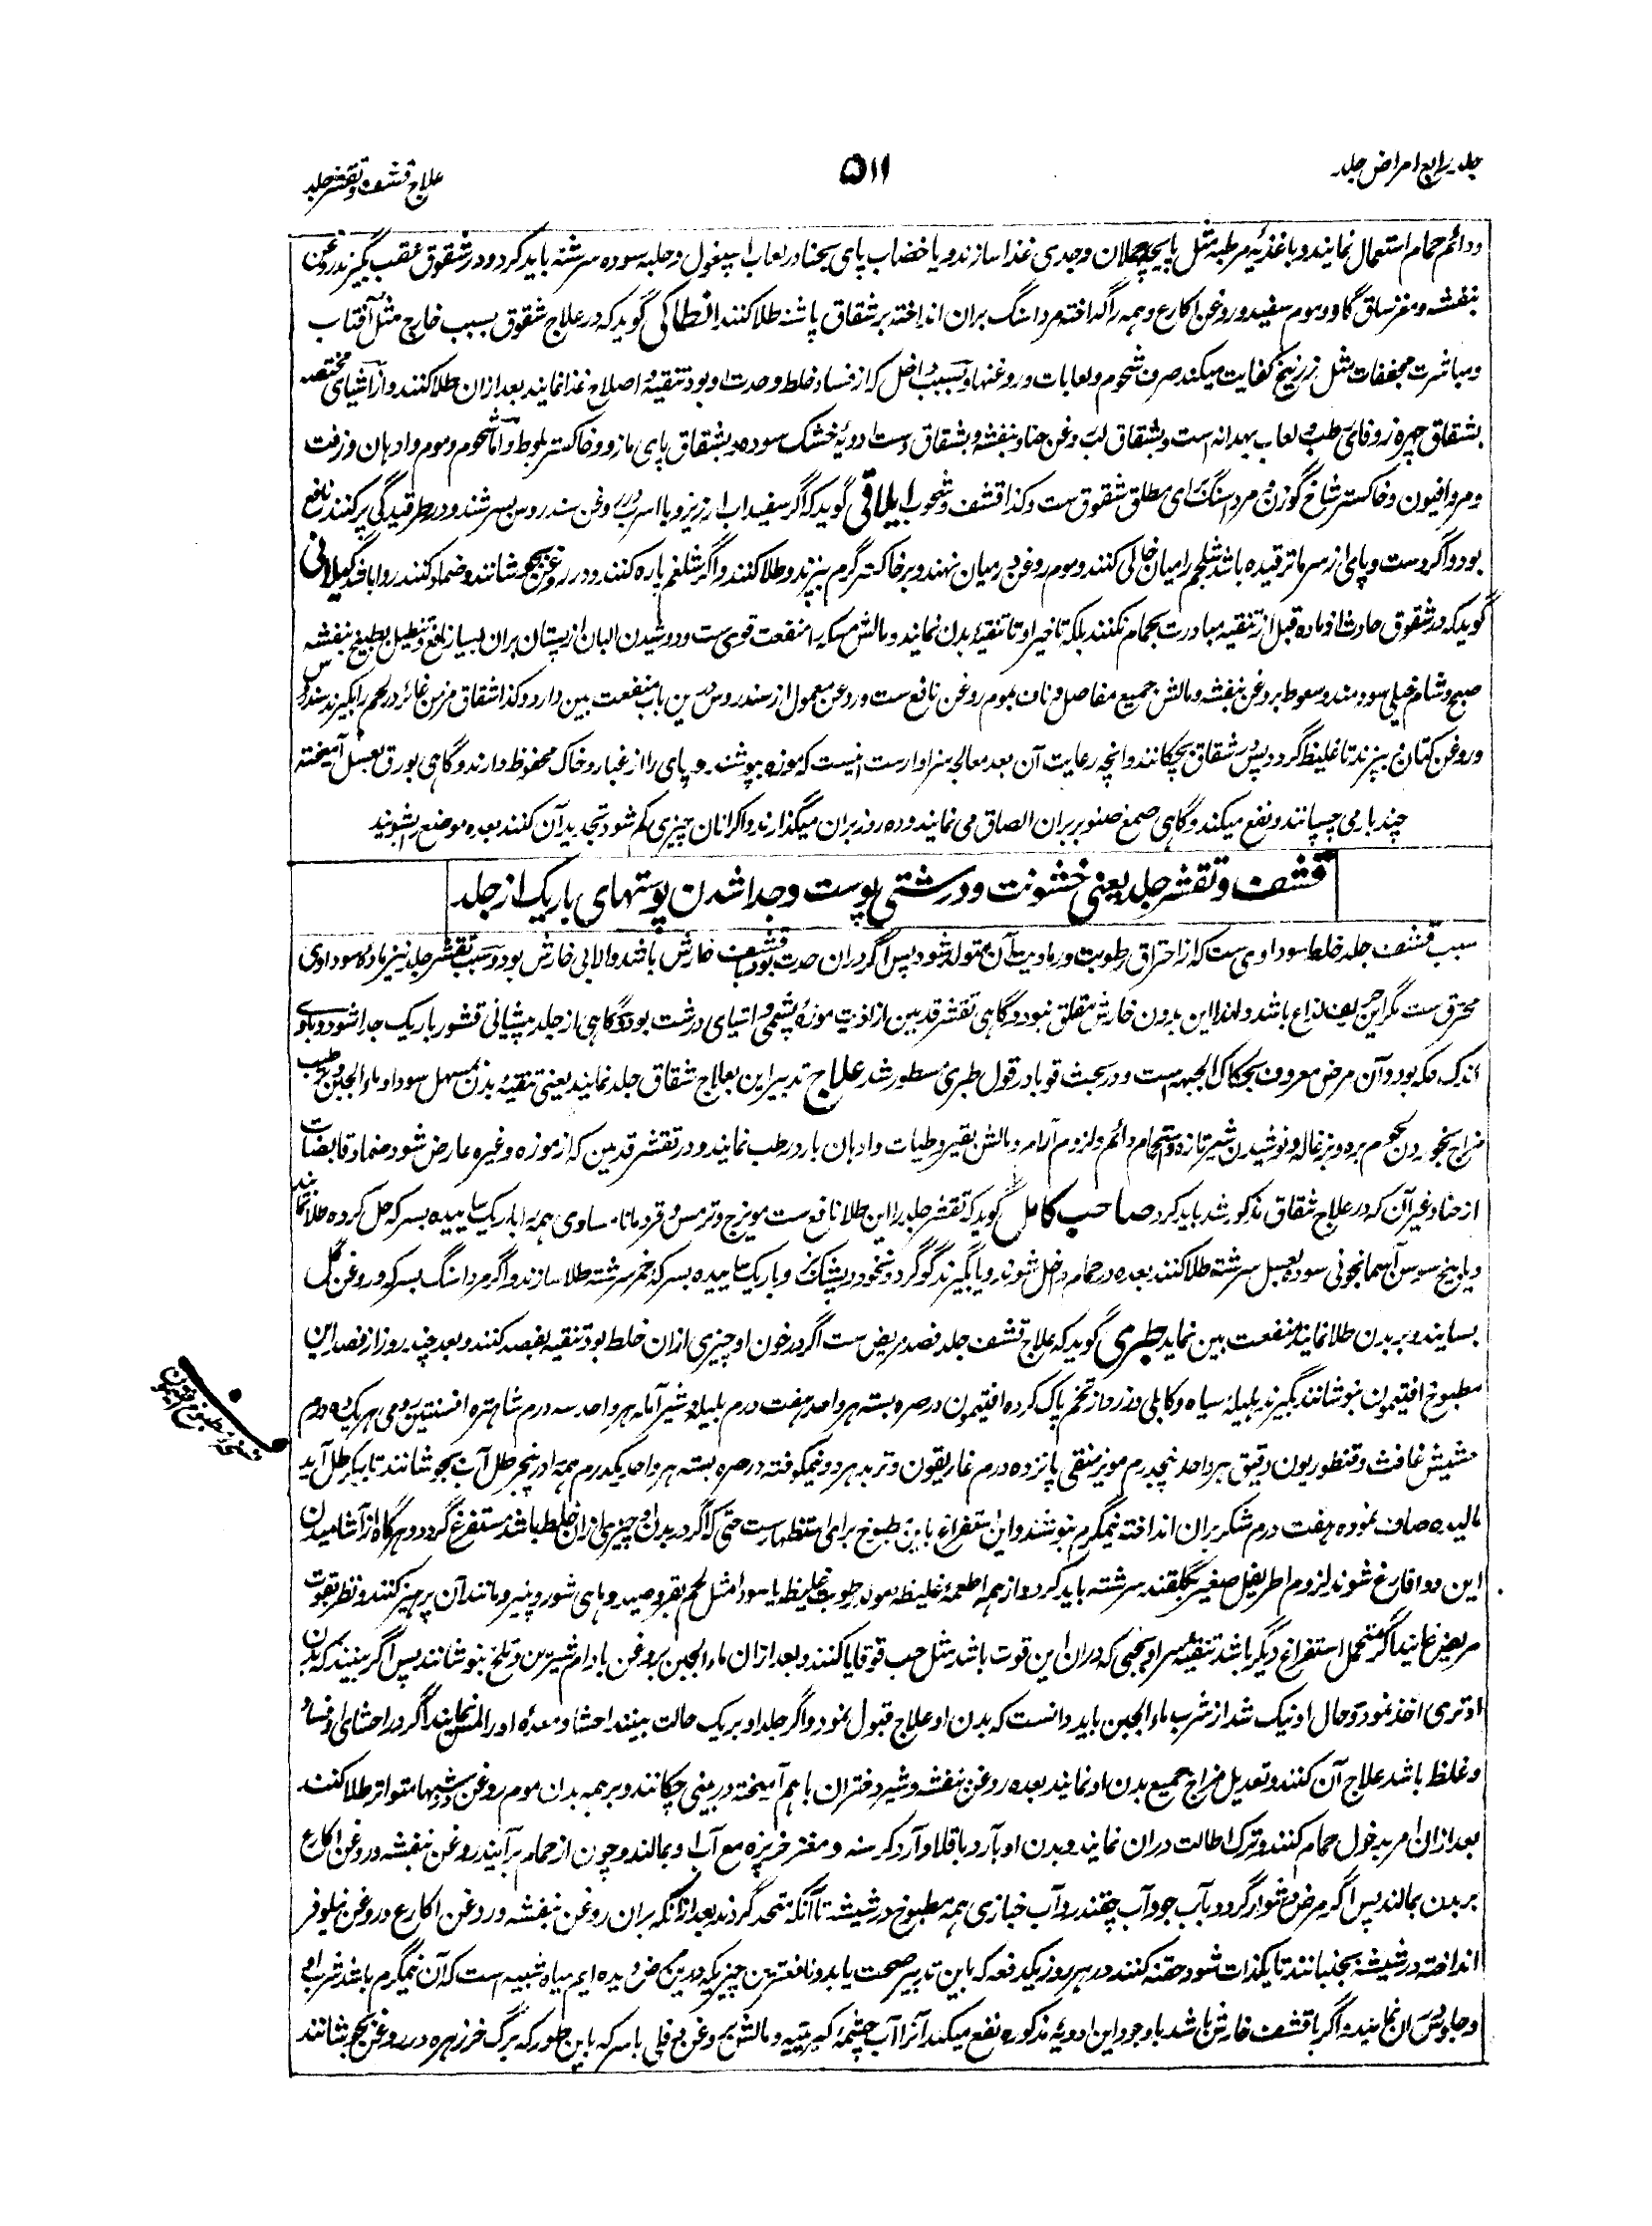 جلد رابع امراض جلد
۵۱۱
علاج قشف و تقشر جلد
و دائم حمام استعمال نمایند و با غذیه مرطبه مثل پایچه حملان و جدی غذا سازند و یا خضاب پای بحنا در لعاب اسپغول و حلبه سوده سرشته باید کرد و در شقوق عقب بگیرند روغن
بنفشه و مغز ساق گاو و موم سفید و روغن اکارع و همه را گداخته مرداسنگ بران انداخته بر شقاق پاشنه طلا کنند انطاکی گوید که در علاج شقوق بسبب خارج مثل آفتاب
و مباشرت مجففات مثل زرنیخ کفایت میکند صرف شحوم و لعابات و روغنها و بسبب داخل که از فساد خلط و حدت او بود تنقیه و اصلاح غذا نمایند بعد ازان طلا کنند و از اشیای مختصه
بشقاق چهره زوفای رطب و لعاب بهدانه است و بشقاق لب روغن حنا و بنفشه و بشقاق دست ادویۀ خشک سوده و بشقاق پای مازو و خاکستر بلوط و اما شحوم و موم و ادهان و زفت
و مر و افیون و خاکستر شاخ گوزن و مرداسنگ برای مطلق شقوق ست و کذا قشف و شحوب ایلاقی گوید که اگر سفیداب ارزیز و یا اسرب در روغن سندروس بسرشند و در طرقیدگی پر کنند نافع
بود و اگر دست و پای از سرما ترقیده باشد شلجم را میان خالی کنند و موم روغن در میان نهند و بر خاکستر گرم بپزند و طلا کنند و اگر شلغم پاره کنند و در روغن بجوشانند و ضماد کنند روا باشد گیلانی
گوید که در شقوق حادث از ماده قبل از تنقیه مبادرت بحمام نکنند بلکه تاخیر او تا تنقیۀ بدن نمایند و مالش مسکه را منفعت قوی ست و دوشیدن البان از پستان بران بسیار نافع و تنطیل بطبیخ بنفشه
صبح و شام خیلی سودمند و سعوط بروغن بنفشه و مالش جمیع مفاصل و ناف بموم روغن نافع ست و روغن معمول از سندروس درین باب منفعت بین دارد و کذا شقاق مزمن غائر در لحم را بگیرند سندروس
و روغن کتان بپزند تا غلیظ گردد پس در شقاق بچکانند و انچه رعایت آن بعد معالجه سزاوارست اینست که موزه بپوشند و پای را از غبار و خاک محفوظ دارند و گاهی بورق بعسل آمیخته
چند بار می چسپانند و نفع میکند و گاهی صمغ صنوبر بران الصاق می نمایند و ده روز بران میگذارند و اگر ازان چیزی کم شود تجدید آن کنند بعده موضع را بشویند
قشف و تقشر جلد یعنی خشونت و درشتی پوست و جدا شدن پوستهای باریک از جلد
سبب قشف جلد خلط سوداوی ست که از احتراق رطوبت و رمادیت آن متولد شود پس اگر دران حدت بود با قشف خارش باشد والا بی خارش بود و سبب تقشر جلد نیز ماده سوداوی
محترق ست مگر این حریف لذاع باشد و لهذا این بدون خارش مقلق نبود و گاهی تقشر قدمین از اذیت موزۀ پشمی و اشیای درشت بود و گاهی از جلد پیشانی قشور باریک جدا شود و با وی
اندک حکه بود و آن مرض معروف بحکاک الجبهه است و در بحث قوبا در قول طبری مسطور شد علاج تدبیر این بعلاج شقاق جلد نمایند یعنی تنقیۀ بدن بمسهل سودا و ماء الجبن و ترطیب
مزاج بخوردن لحوم بره و بزغاله و نوشیدن شیر تازه و استحمام دائم و لزوم آرام و مالش بقیروطیات و ادهان بارد رطب نمایند و در تقشر قدمین که از موزه وغیره عارض شود ضماد قابضات
از حنا و غیر آن که در علاج شقاق مذکور شد باید کرد صاحب کامل گوید که تقشر جلد را این طلا نافع ست مویزج و ترمس و قردمانا مساوی همه را باریک ساییده بسرکه حل کرده طلا نمایند
و یا بیخ سوسن آسمانجونی سوده بعسل سرشته طلا کنند بعده در حمام داخل شوند و یا بگیرند گوگرد و نخود و پشک بز و باریک ساییده بسرکه خمر سرشته طلا سازند و اگر مرداسنگ بسرکه و روغن گل
بسایند و بر بدن طلا نمایند منفعت بین نماید طبری گوید که علاج قشف جلد فصد مریض ست اگر در خون او چیزی ازان خلط بود تنقیه بفصد کنند و بعد چند روز از فصد این
مطبوخ افتیمون بنوشانند بگیرند هلیلۀ سیاه و کابلی و زرد از تخم پاک کرده افتیمون در صره بسته هر واحد هفت درم بلیله و شیر آمله هر واحد سه درم شاهتره افسنتین رومی هر یک ده درم
حشیش غافث و قنطوریون دقیق هر واحد پنجدرم مویز منقی پانزده درم غاریقون و تربد هر دو نیمکوفته در صره بسته هر واحد یکدرم همه را در پنج رطل آب بجوشانند تا بیکرطل آید
مالیده صاف نموده هفت درم شکر بران انداخته نیمگرم بنوشند و این استفراغ باین مطبوخ برای استظهار ست حتی که اگر در بدن او چیزی ازان خلط باشد مستفرغ گردد و هرگاه از آشامیدن
این دوا فارغ شوند لزوم اطریفل صغیر بگلقند سرشته باید کرد و از همه اطعمۀ غلیظه مولد رطوبت غلیظ یا سودا مثل لحم بقر و صید و ماهی شور و پنیر و مانند آن پرهیز کنند و نظر بقوت
مریض نمایند اگر متحمل استفراغ دیگر باشد تنقیۀ سر او بحبی که دران این قوت باشد مثل حب قوقایا کنند و بعد ازان ماء الجبن بروغن بادام شیرین و تلخ بنوشانند پس اگر ببینند که بدن
او تری اخذ نمود و حال او نیک شد از شرب ماء الجبن باید دانست که بدن او علاج قبول نمود و اگر جلد او بر یک حالت بینند احشا و معدۀ او را لمس نمایند اگر در احشای او فساد
و غلظ باشد علاج آن کنند و تعدیل مزاج جمیع بدن او نمایند بعده روغن بنفشه و شیر دختران باهم آمیخته در بینی چکانند و بر همه بدن موم روغن و شبها متواتر طلا کنند
بعد ازان امر بدخول حمام کنند و ترک اطالت دران نمایند و بدن او بآرد باقلا و آرد کرسنه و مغز خربزه مع آب او بمالند و چون از حمام برآیند روغن بنفشه و روغن اکارع
بر بدن بمالند پس اگر مرض دشوار گردد بآب جو و آب چقندر و آب خبازی همه مطبوخ در شیشه تا آنکه متحد گردند بعد ازانکه بران روغن بنفشه و روغن اکارع و روغن نیلوفر
انداخته در شیشه بجنبانند تا یکذات شود حقنه کنند در هر روز یکدفعه که باین تدبیر صحت یابد و نافعترین چیزیکه درین مرض دیده ایم میاه شبیه است که آن نیمگرم باشد شرب از وی
و جلوس در ان نمایند و اگر با قشف خارش باشد با وجود این ادویۀ مذکوره نفع میکند آنرا آب چشمۀ کبریتیه و مالش بروغن دفلی با سرکه باین طور که برگ خرزهره در روغن بجوشانند